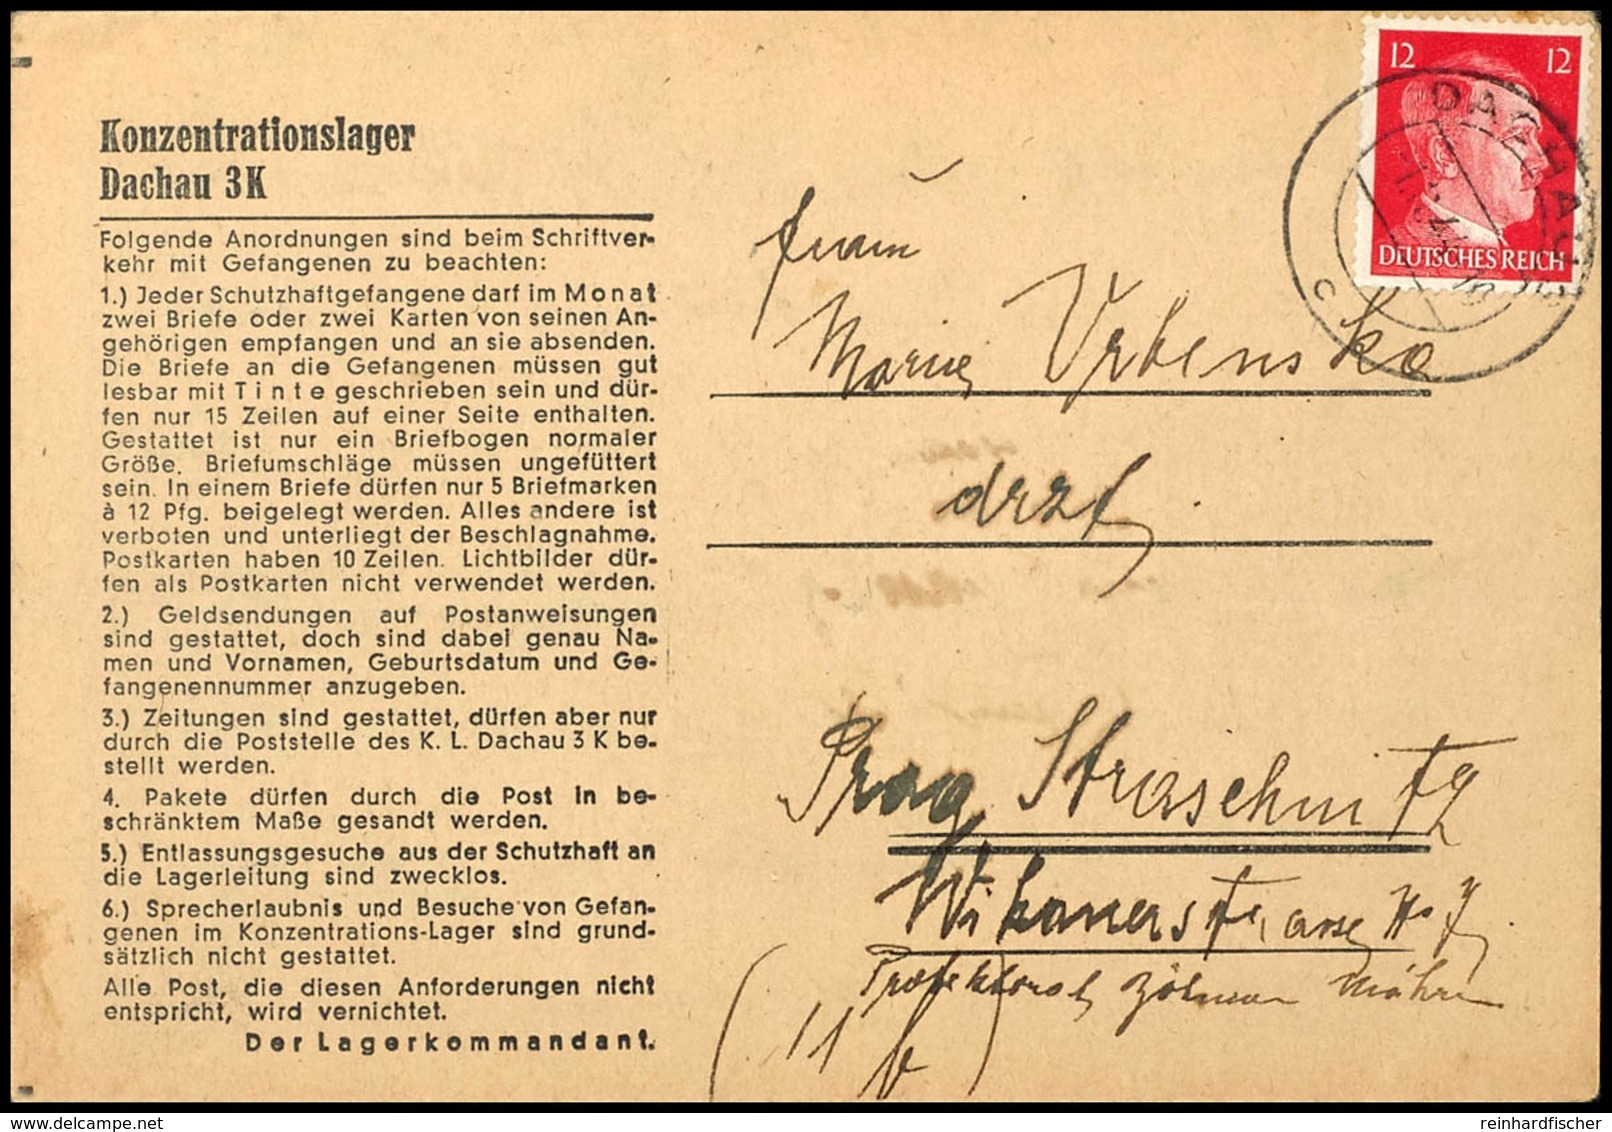 Konzentrationslager
Dachau 3K
Folgende Anordnungen sind beim Schriftver-
kehr mit Gefangenen zu beachten:
1.) Jeder Schutzhaftgefangene darf im Monat
zwei Briefe oder zwei Karten von seinen An-
gehörigen empfangen und an sie absenden.
Die Briefe an die Gefangenen müssen gut
lesbar mit Tinte geschrieben sein und dür-
fen nur 15 Zeilen auf einer Seite enthalten.
Gestattet ist nur ein Briefbogen normaler
Größe. Briefumschläge müssen ungefüttert
sein. In einem Briefe dürfen nur 5 Briefmarken
à 12 Pfg. beigelegt werden. Alles andere ist
verboten und unterliegt der Beschlagnahme.
Postkarten haben 10 Zeilen. Lichtbilder dür-
fen als Postkarten nicht verwendet werden.
2.) Geldsendungen auf Postanweisungen
sind gestattet, doch sind dabei genau Na-
men und Vornamen, Geburtsdatum und Ge-
fangenennummer anzugeben.
3.) Zeitungen sind gestattet, dürfen aber nur
durch die Poststelle des K. L. Dachau 3 K be-
stellt werden.
4. Pakete dürfen durch die Post in be-
schränktem Maße gesandt werden.
5.) Entlassungsgesuche aus der Schutzhaft an
die Lagerleitung sind zwecklos.
6.) Sprecherlaubnis und Besuche von Gefan-
genen im Konzentrations-Lager sind grund-
sätzlich nicht gestattet.
Alle Post, die diesen Anforderungen nicht
entspricht, wird vernichtet.
Der Lagerkommandant.
12 12
DEUTSCHES REICH
DACHAU
c
Marie Vrbenska
Prag Straschnitz
(11 b)
reinhardfischer